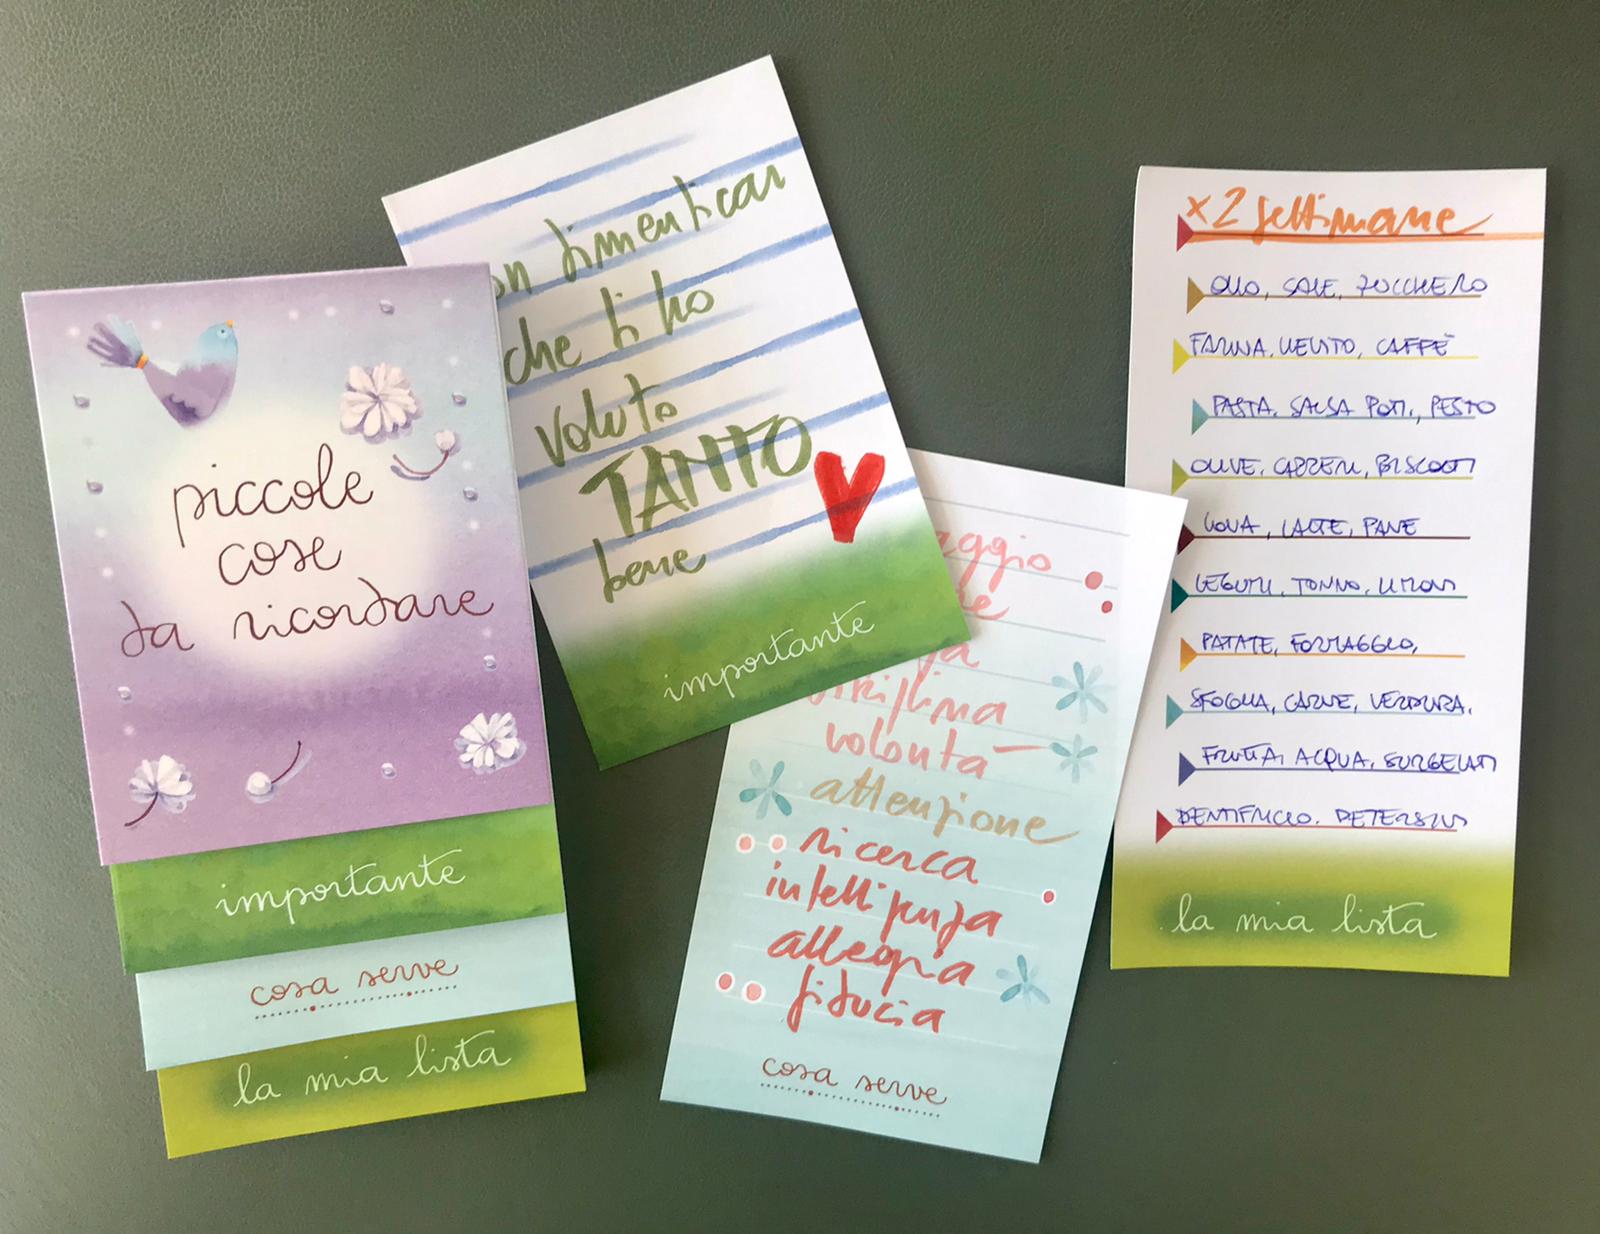 piccole
cose
da ricordare
importante
cosa serve
la mia lista
dimenticar
che ti ho
voluto
TANTO
bene
importante
volontà
attenzione
ricerca
intelligenza
allegria
fiducia
cosa serve
x2 settimane
OLIO, SALE, ZUCCHERO
FARINA, LIEVITO, CAFFÈ
PASTA, SALSA POM., PESTO
OLIVE, CAPPERI, BISCOTTI
UOVA, LATTE, PANE
LEGUMI, TONNO, LIMONI
PATATE, FORMAGGIO,
SFOGLIA, CARNE, VERDURA,
FRUTTA, ACQUA, SURGELATI
DENTIFRICIO, DETERSIVI
la mia lista